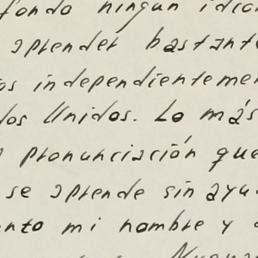 fondo ningún idio
aprender bastante
os independienteme
dos Unidos. Lo más
pronunciación que
se aprende sin ayu
nto mi nombre y